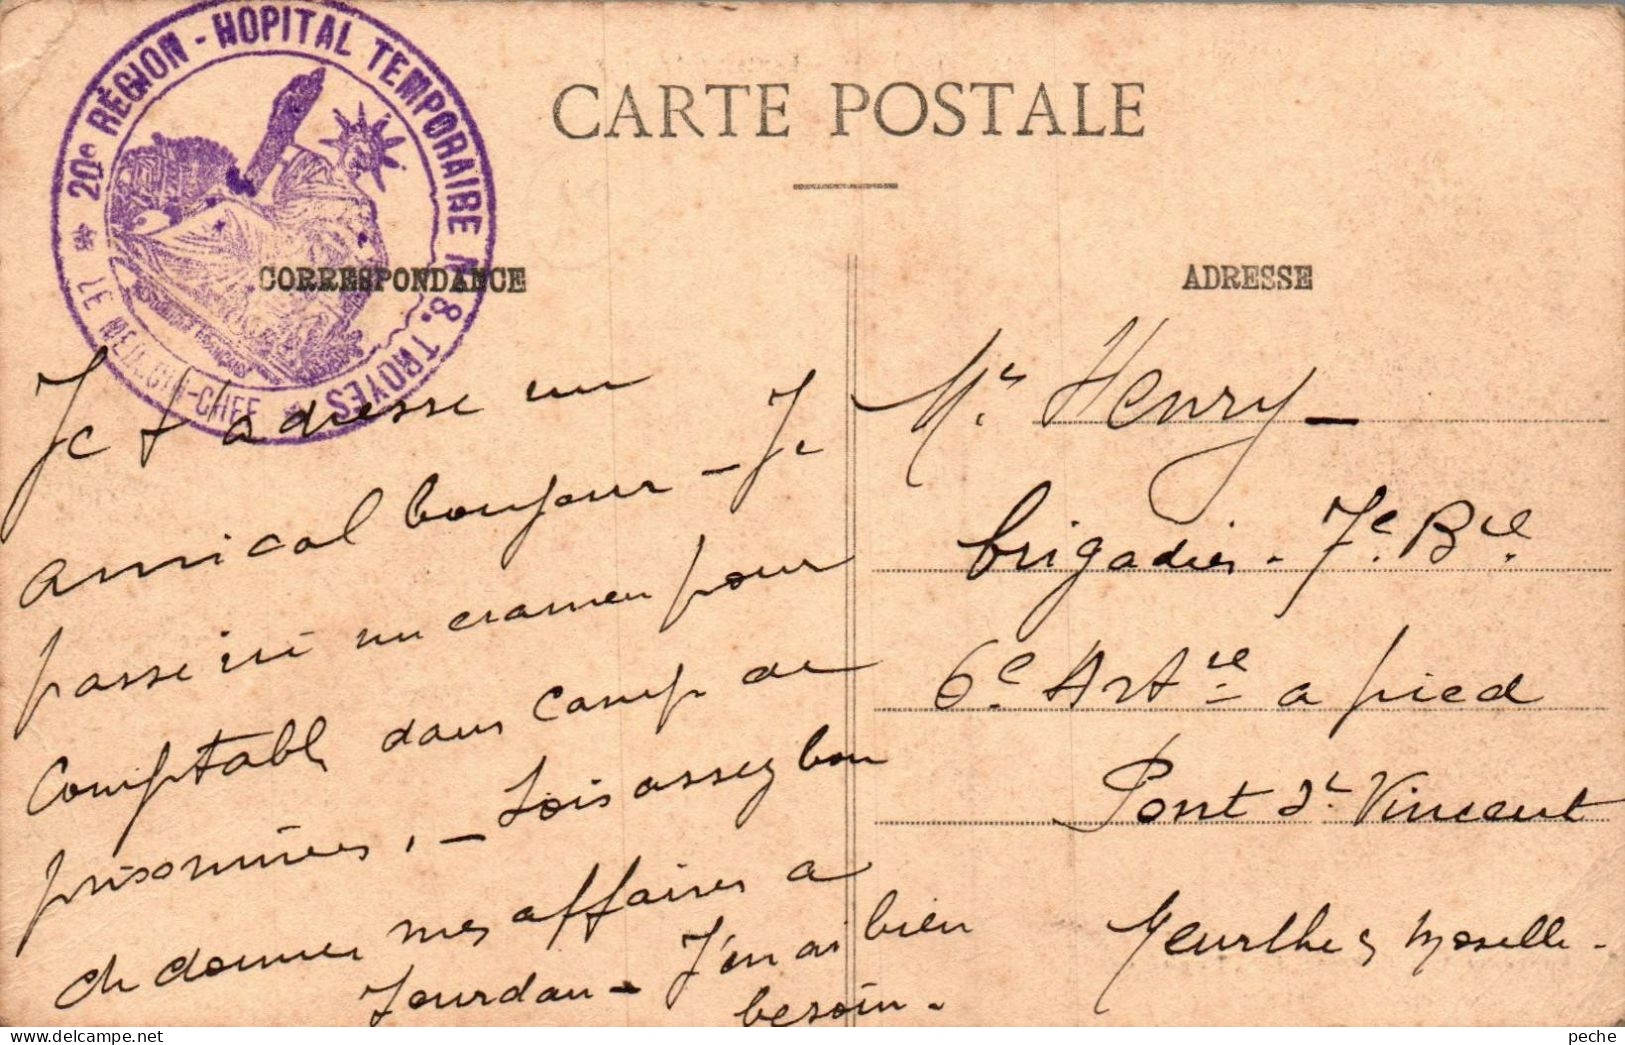 20e RÉGION - HOPITAL TEMPORAIRE N° 8. TROYES
* LE MEDECIN-CHEF *
CARTE POSTALE
CORRESPONDANCE
ADRESSE
Je t'adresse un
amical bonjour - Je
passe ici un examen pour
comptable dans camp de
prisonniers. - Sois assez bon
de donner mes affaires a
Jourdan - J'en ai bien
besoin.
Mr. Henry -
brigadier. 7e. Bie.
6e. Artie a pied
Pont St. Vincent
Meurthe & Moselle.
peche